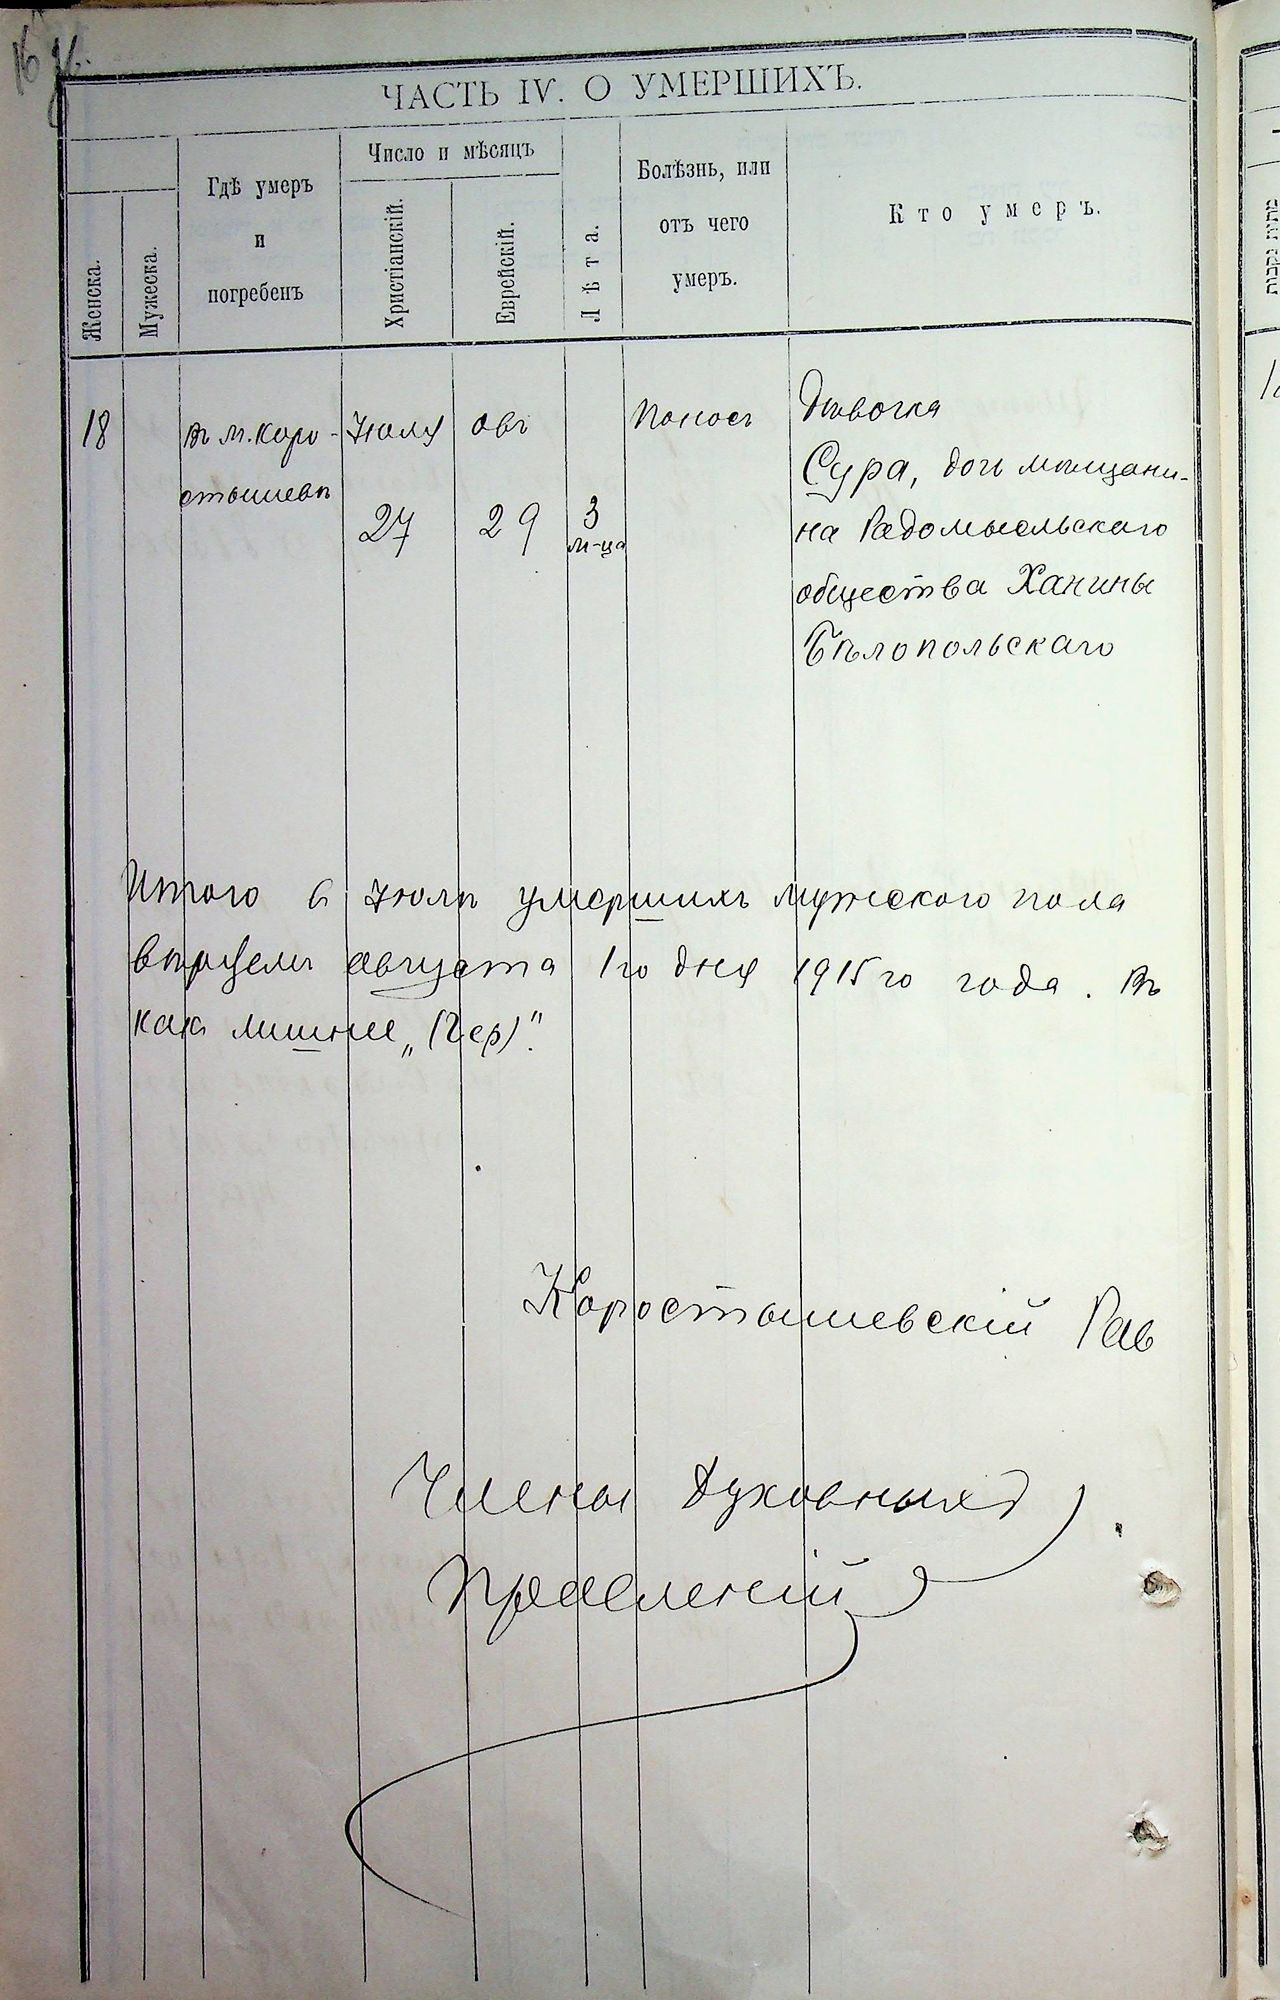 16 об.
ЧАСТЬ IV. О УМЕРШИХЪ.
Женска.
Мужеска.
Гдѣ умеръ
и
погребенъ
Число и мѣсяцъ
Христіанскій.
Еврейскій.
Лѣта.
Болѣзнь, или
отъ чего
умеръ.
Кто умеръ.
18
въ м. Коро-
стышевѣ
Іюля
27
Овъ
29
3
м-ца
Поносъ
Дѣвочка
Сура, дочь мѣщани-
на Радомысльскаго
общества Ханины
Бѣлопольскаго
Итого в Іюлѣ умершихъ мужескаго пола
августа 1го дня 1915го года. Въ
какъ лишнее „(Чер)".
Коростышевскій Рав
Члены Духовныхъ
Правленій